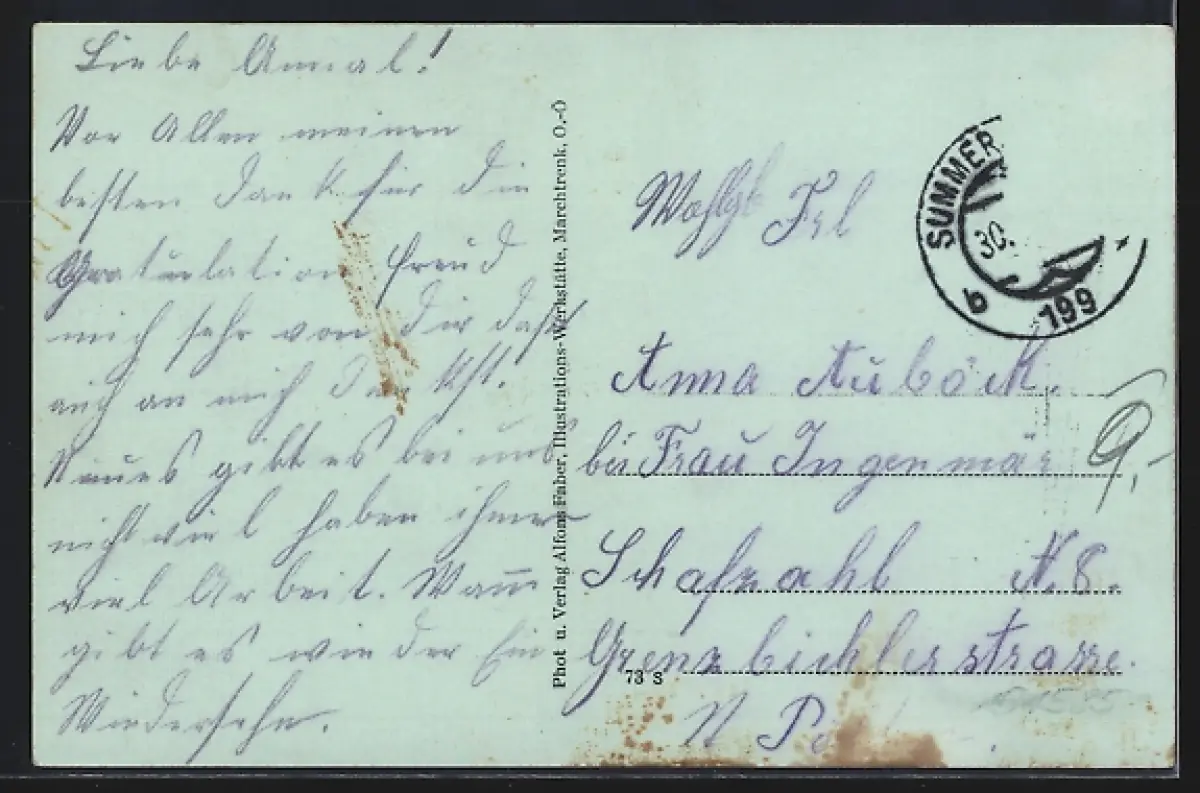 Liebe Annal!
Vor Allen meinen
besten Dank für die
Gratulation freud
mich sehr von dir das
auch an mich denkst.
Neues gibt es bei uns
nicht viel haben immer
viel Arbeit. Wann
gibt es wieder Ein
Wiedersehn.
Phot u. Verlag Alfons Faber, Illustrations-Werkstätte, Marchtrenk, O.-Ö
SUMMER
30.
b
199
Frl
Anna Auböck.
bei Frau Ingenmär
9,-
Schafzahl N. 8.
Grenzbichlerstrasse.
73 S